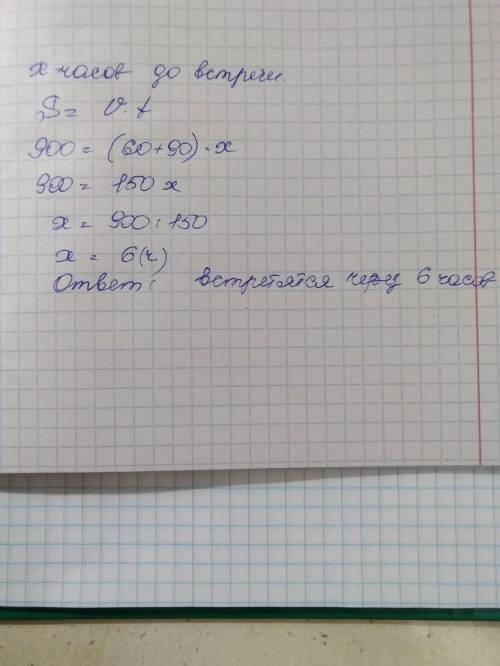 x часов до встречи.
S = v · t
900 = (60+90) · x
900 = 150 x
x = 900 : 150
x = 6(ч)
Ответ: встретятся через 6 часов